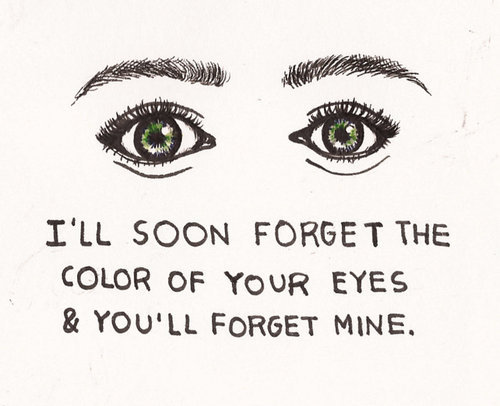 I'LL SOON FORGET THE
COLOR OF YOUR EYES
& YOU'LL FORGET MINE.